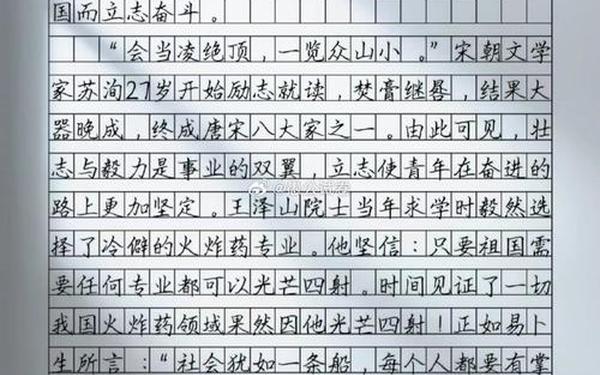 国而立志奋斗。
“会当凌绝顶，一览众山小。”宋朝文学
家苏洵27岁开始励志就读，焚膏继晷，结果大
器晚成，终成唐宋八大家之一。由此可见，壮
志与毅力是事业的双翼，立志使青年在奋进的
路上更加坚定。王泽山院士当年求学时毅然选
择了冷僻的火炸药专业。他坚信：只要祖国需
要任何专业都可以光芒四射。时间见证了一切
我国火炸药领域果然因他光芒四射！正如易卜
生所言：“社会犹如一条船，每个人都要有掌